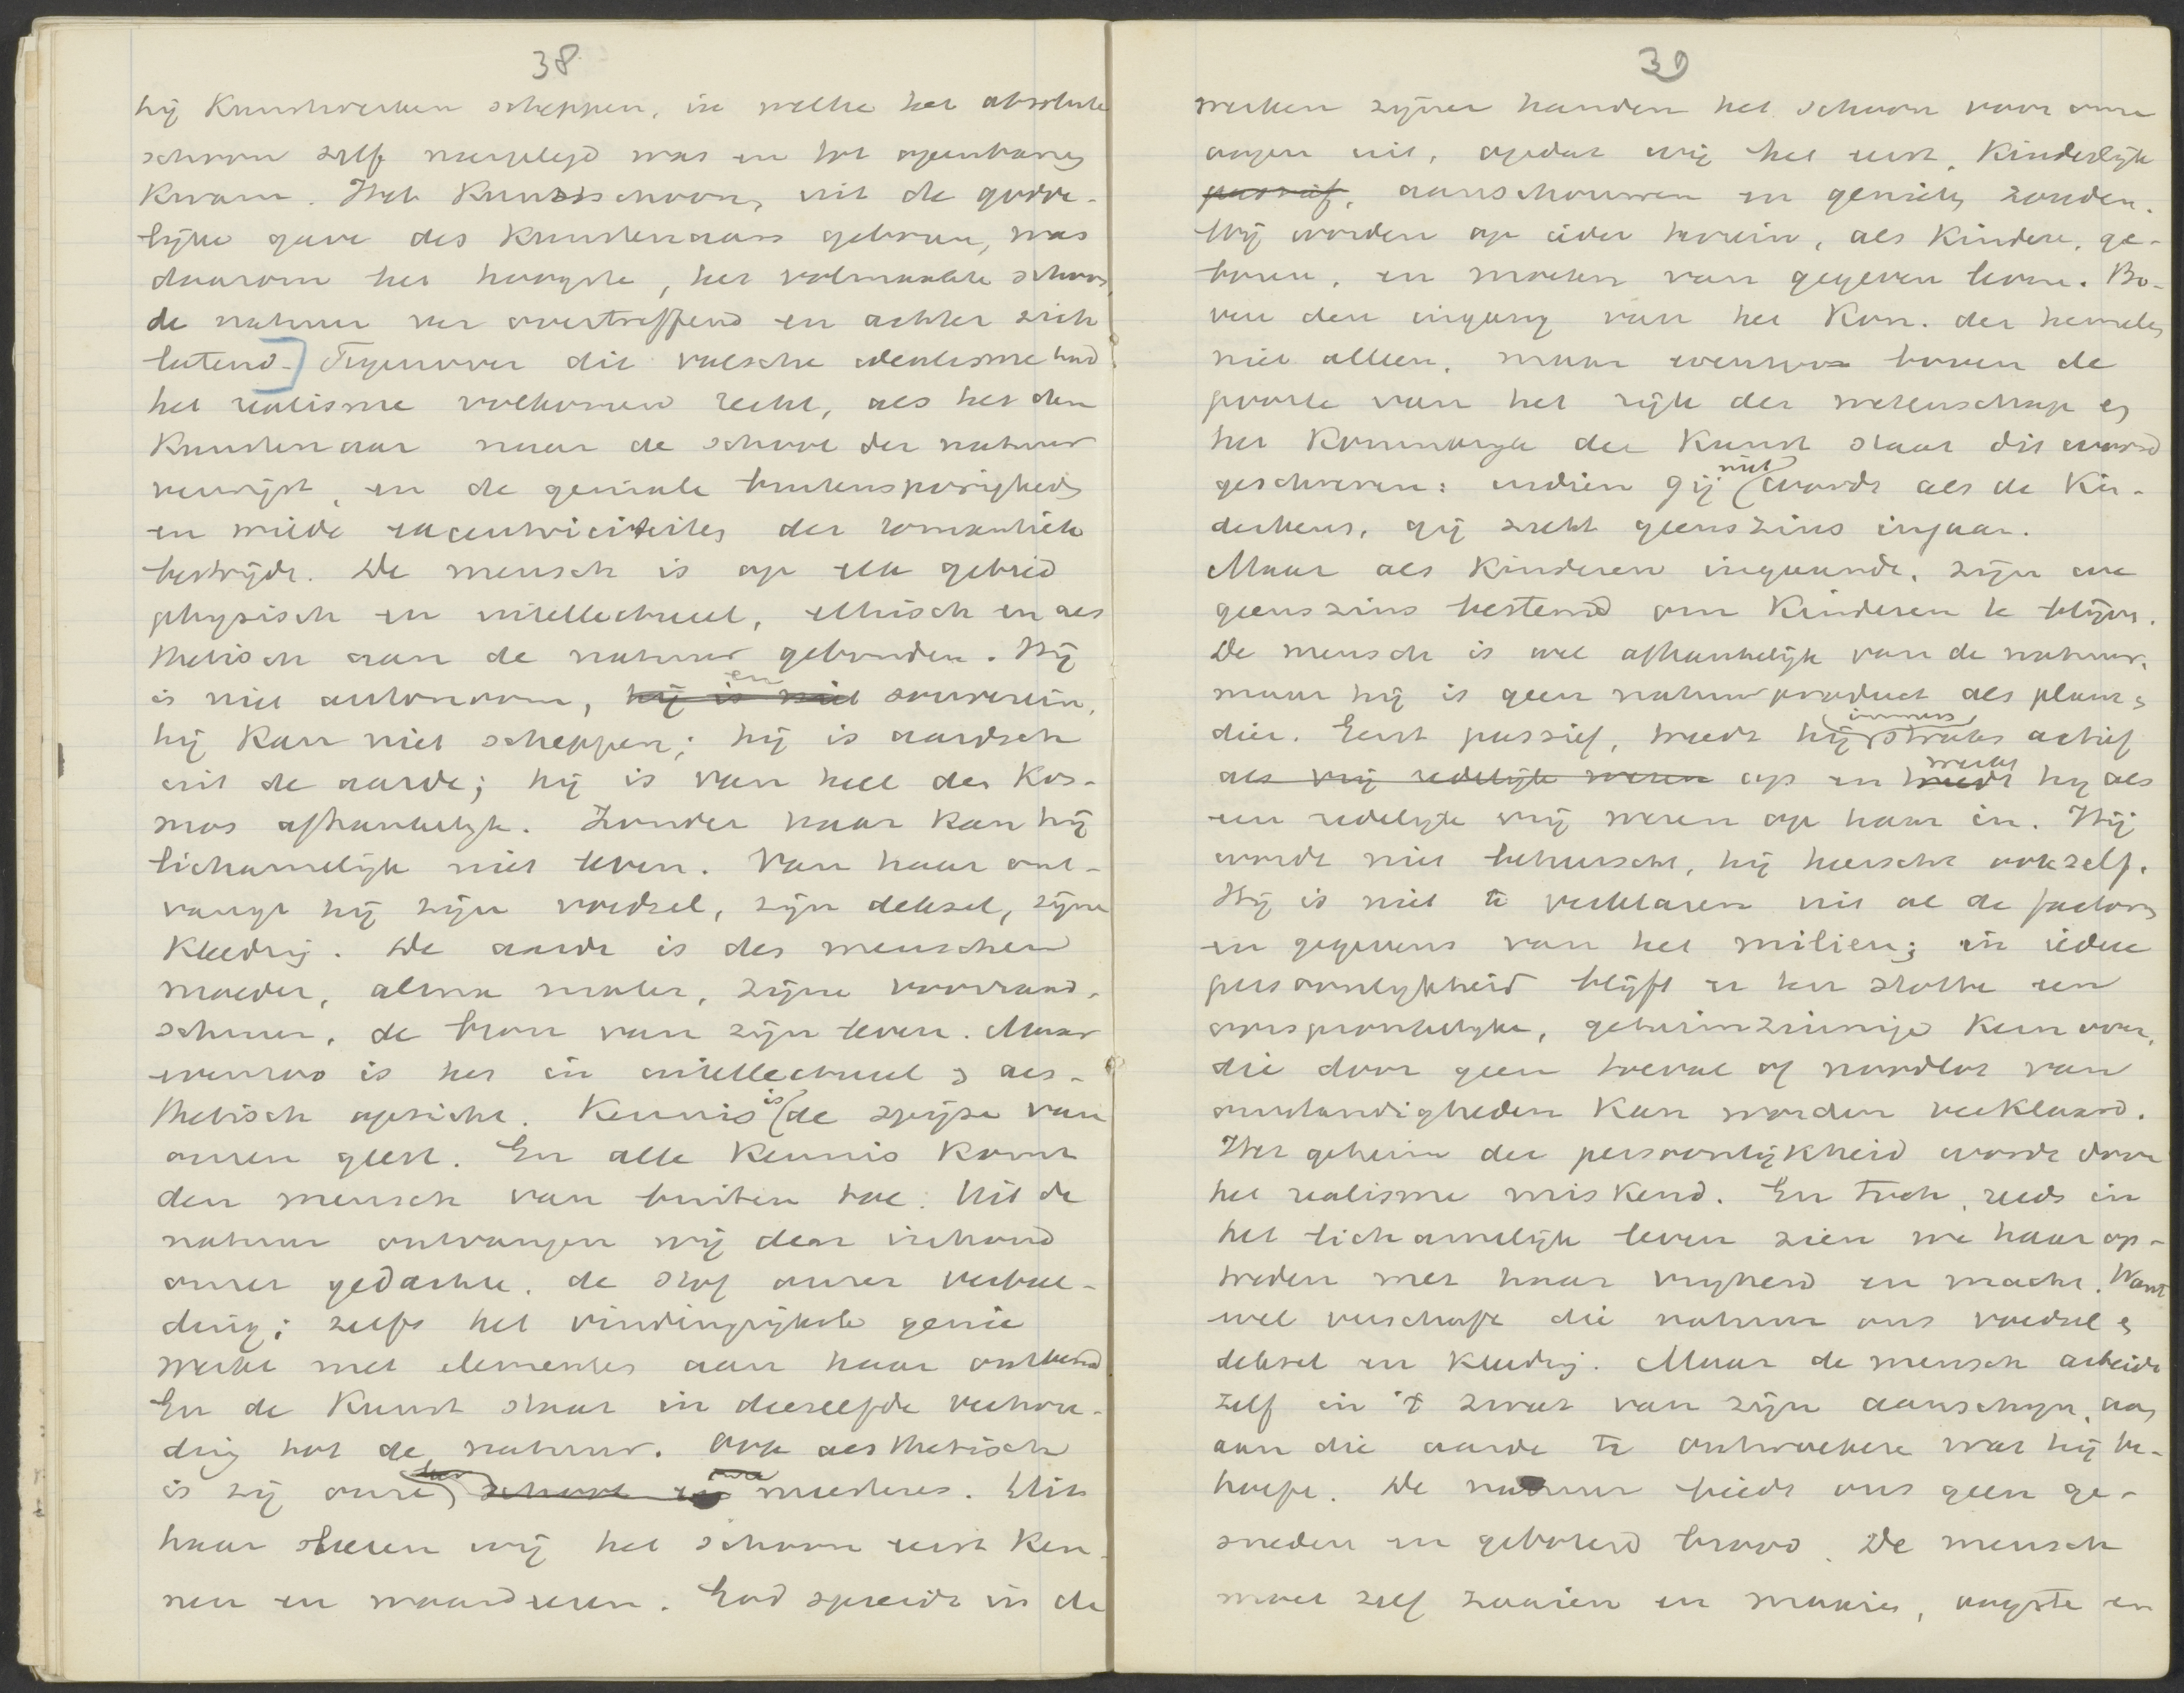 38
hij Kunstwerken scheppen, in welke het absolute
schoon zelf neergelegd was en tot openbaring
Kwam. Het Kunstschoon, uit de godde-
lijke gave des Kunstenaars geboren, was
daarom het hoogste, het volmaakte schoon,
de natuur ver overtreffend en achter zich
latend.] Tegenover dit valsche idealisme had
het realisme volkomen recht, als het den
Kunstenaar naar de school der natuur
verwijst, en de geniale buitensporigheden
en wilde excentriciteiten der romantiek
bestrijdt. De mensch is op elk gebied
physisch en intellectueel, ethisch en aes
thetisch aan de natuur gebonden. Hij
is niet autonoom, hij is niet en souverein,
hij Kan niet scheppen; hij is aardsch
uit de aarde; hij is van heel den Kos-
mos afhankelijk. Zonder haar kan hij
lichamelijk niet leven. Van haar ont-
vangt hij zijn voedsel, zijn deksel, zijne
Kleeding. De aarde is des menschen
moeder, alma mater, zijne voorraad-
schuur, de bron van zijn leven. Maar
evenzoo is het in intellectueel en aes-
thetisch opzicht. Kennis is de spijze van
onzen geest. En alle Kennis Komt
den mensch van buiten toe. Uit de
natuur ontvangen wij den inhoud
onzer gedachte, de stof onzer verbeel-
ding; zelfs het vindingrijkste genie
werkt met elementen aan haar ontleend
En de Kunst staat in diezelfde verhou-
ding tot de natuur. Ook aesthetisch
is zij onze leer school en meesteres. Uit
haar leeren wij het schoon eerst Ken-
nen en waardeeren. God spreidt in de
39
werken zijner handen het schoon voor onze
oogen uit, opdat wij het eerst, Kinderlijk
passief, aanschouwen en genieten zouden.
Wij worden op ieder terrein, als Kinderen, ge-
boren, en moeten van gegeven leven. Bo-
ven den ingang van het Kon. der hemelen
niet alleen, maar evenzoo boven de
poorte van het rijk der wetenschap en
het Koninkrijk der Kunst staat dit woord
geschreven: indien gij niet wordt als de Kin-
derkens, gij zult geenszins ingaan.
Maar als Kinderen ingaande, zijn we
geenszins bestemd om Kinderen te blijven.
De mensch is wel afhankelijk van de natuur,
maar hij is geen natuurproduct als plant en
dier. Eerst passief, treedt hij immers straks actief
als vrij redelijk wezen op en treedt werkt hij als
een redelijk vrij wezen op haar in. Hij
wordt niet beheerscht, hij heerscht ook zelf.
Hij is niet te verklaren uit al de factoren
en gegevens van het milieu; in iedere
persoonlijkheid blijft er ten slotte een
oorspronkelijke, geheimzinnige Kern over,
die door geen toeval of noodlot van
omstandigheden Kan worden verklaard.
Het geheim der persoonlijkheid wordt door
het realisme miskend. En toch, reeds in
het lichamelijk leven zien we haar op-
treden met haar vrijheid en macht. Want
wel verschaft die natuur ons voedsel en
deksel en Kleeding. Maar de mensch arbeidt
zelf in 't zweet van zijn aanschijn, om
aan die aarde te ontwoekeren wat hij be-
hoeft. De natuur biedt ons geen ge-
sneden en geboterd brood. De mensch
moet zelf zaaien en maaien, oogsten en